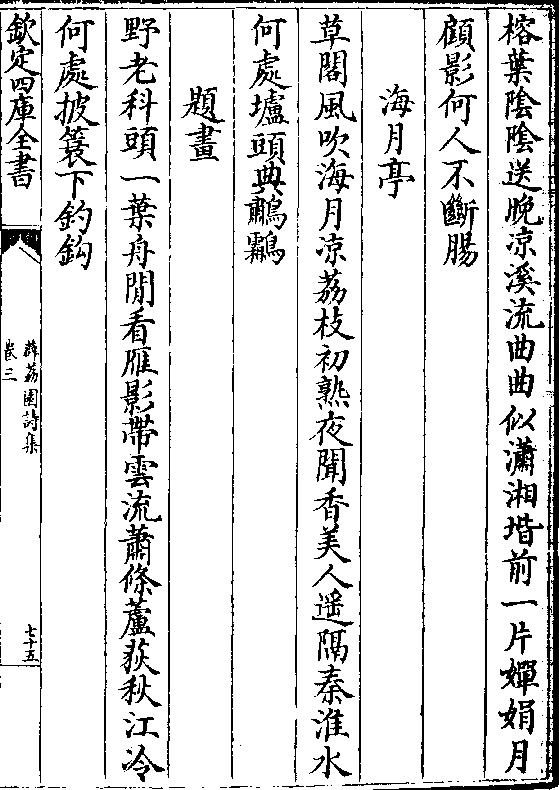 榕葉陰陰送晚凉溪流曲曲似瀟湘堦前一片嬋娟月
顧影何人不斷腸
海月亭
草閣風吹海月凉荔枝初熟夜聞香美人遥隔秦淮水
何處壚頭典鷫鸘
題畫
野老科頭一葉舟閒看雁影帶雲流蕭條蘆荻秋江冷
何處披簑下釣鈎
欽定四庫全書
薜荔園詩集
卷三
七十五